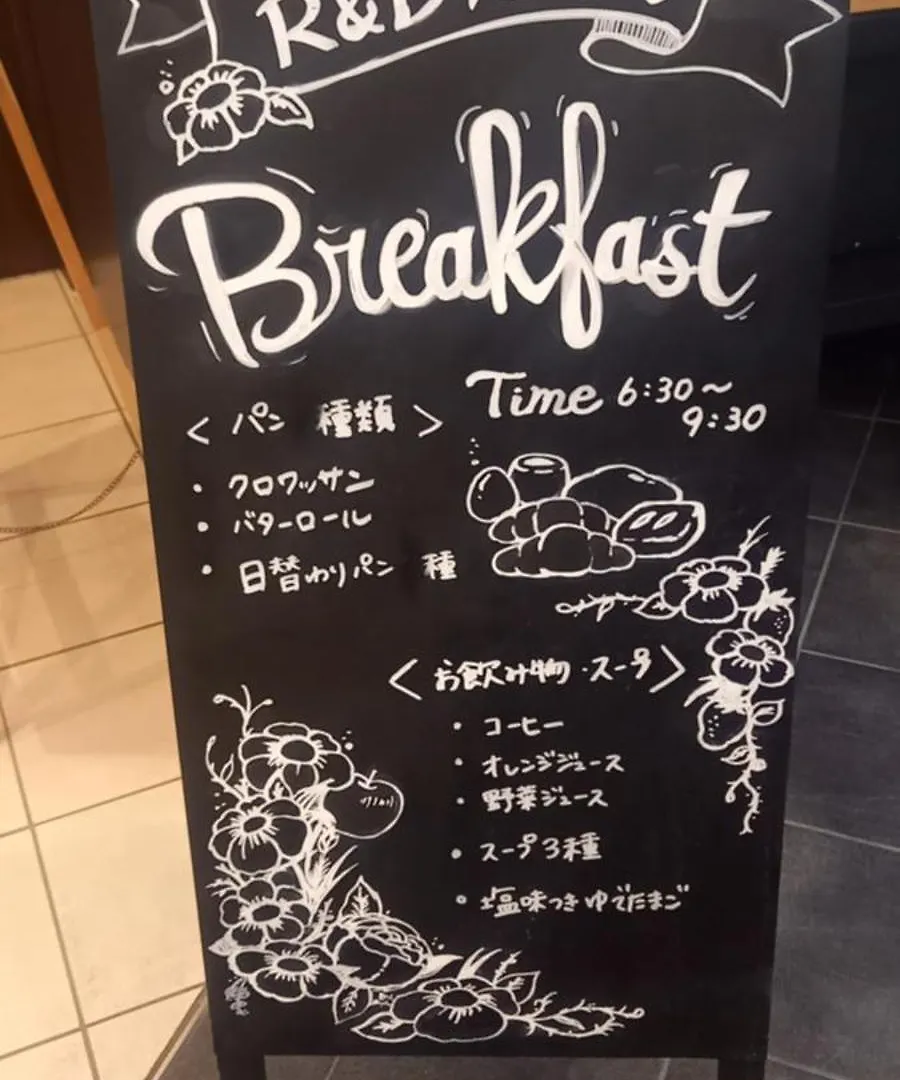 R&B
Breakfast
Time 6:30~
9:30
<パン 種類>
・クロワッサン
・バターロール
・日替わりパン 種
<お飲み物・スープ>
・コーヒー
・オレンジジュース
・野菜ジュース
・スープ3種
・塩味つきゆでたまご